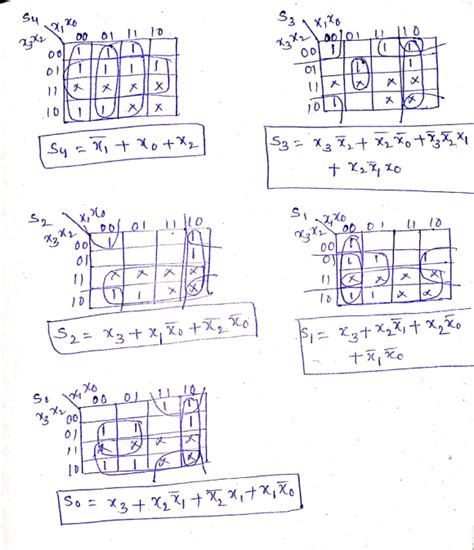 S₄ x₁x₀
x₃x₂ 00 01 11 10
00 1 1 1
01 1 1 1 1
11 x x x x
10 1 1 x x
S₄ = x̅₁ + x₀ + x₂
S₃ x₁x₀
x₃x₂ 00 01 11 10
00 1 1 1
01 1 1
11 x x x x
10 1 x x
S₃ = x₃x̅₂ + x̅₂x̅₀ + x̅₃x̅₂x₁
+ x₂x̅₁x₀
S₂ x₁x₀
x₃x₂ 00 01 11 10
00 1 1
01 1
11 x x x x
10 1 1 x x
S₂ = x₃ + x₁x̅₀ + x̅₂x̅₀
S₁ x₁x₀
x₃x₂ 00 01 11 10
00 1
01 1 1 1
11 x x x x
10 1 1 x x
S₁ = x₃ + x₂x̅₁ + x₂x̅₀
+ x̅₁x̅₀
S₀ x₁x₀
x₃x₂ 00 01 11 10
00 1 1
01 1 1 1
11 x x x x
10 1 1 x x
S₀ = x₃ + x₂x̅₁ + x̅₂x₁ + x₁x̅₀